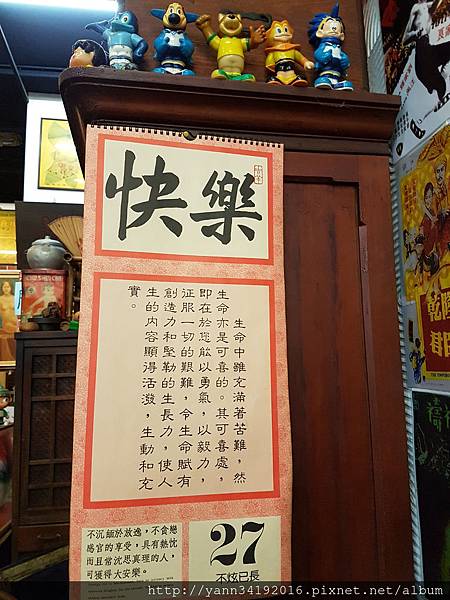 快樂
生命中雖充滿著苦難，然
生命亦是可喜的。其可喜處，
即在於您能以勇氣，以毅力，
征服一切的艱難，令生命賦有
創造力和堅勒的生長力，使人
生的內容顯得活潑，生動和充
實。
不沉緬於放逸，不貪戀
感官的享受，具有熱忱
而且常沈思真理的人，
可獲得大安樂。
27
不炫已長
乾隆
君臣
http://yann34192016.pixnet.net/album